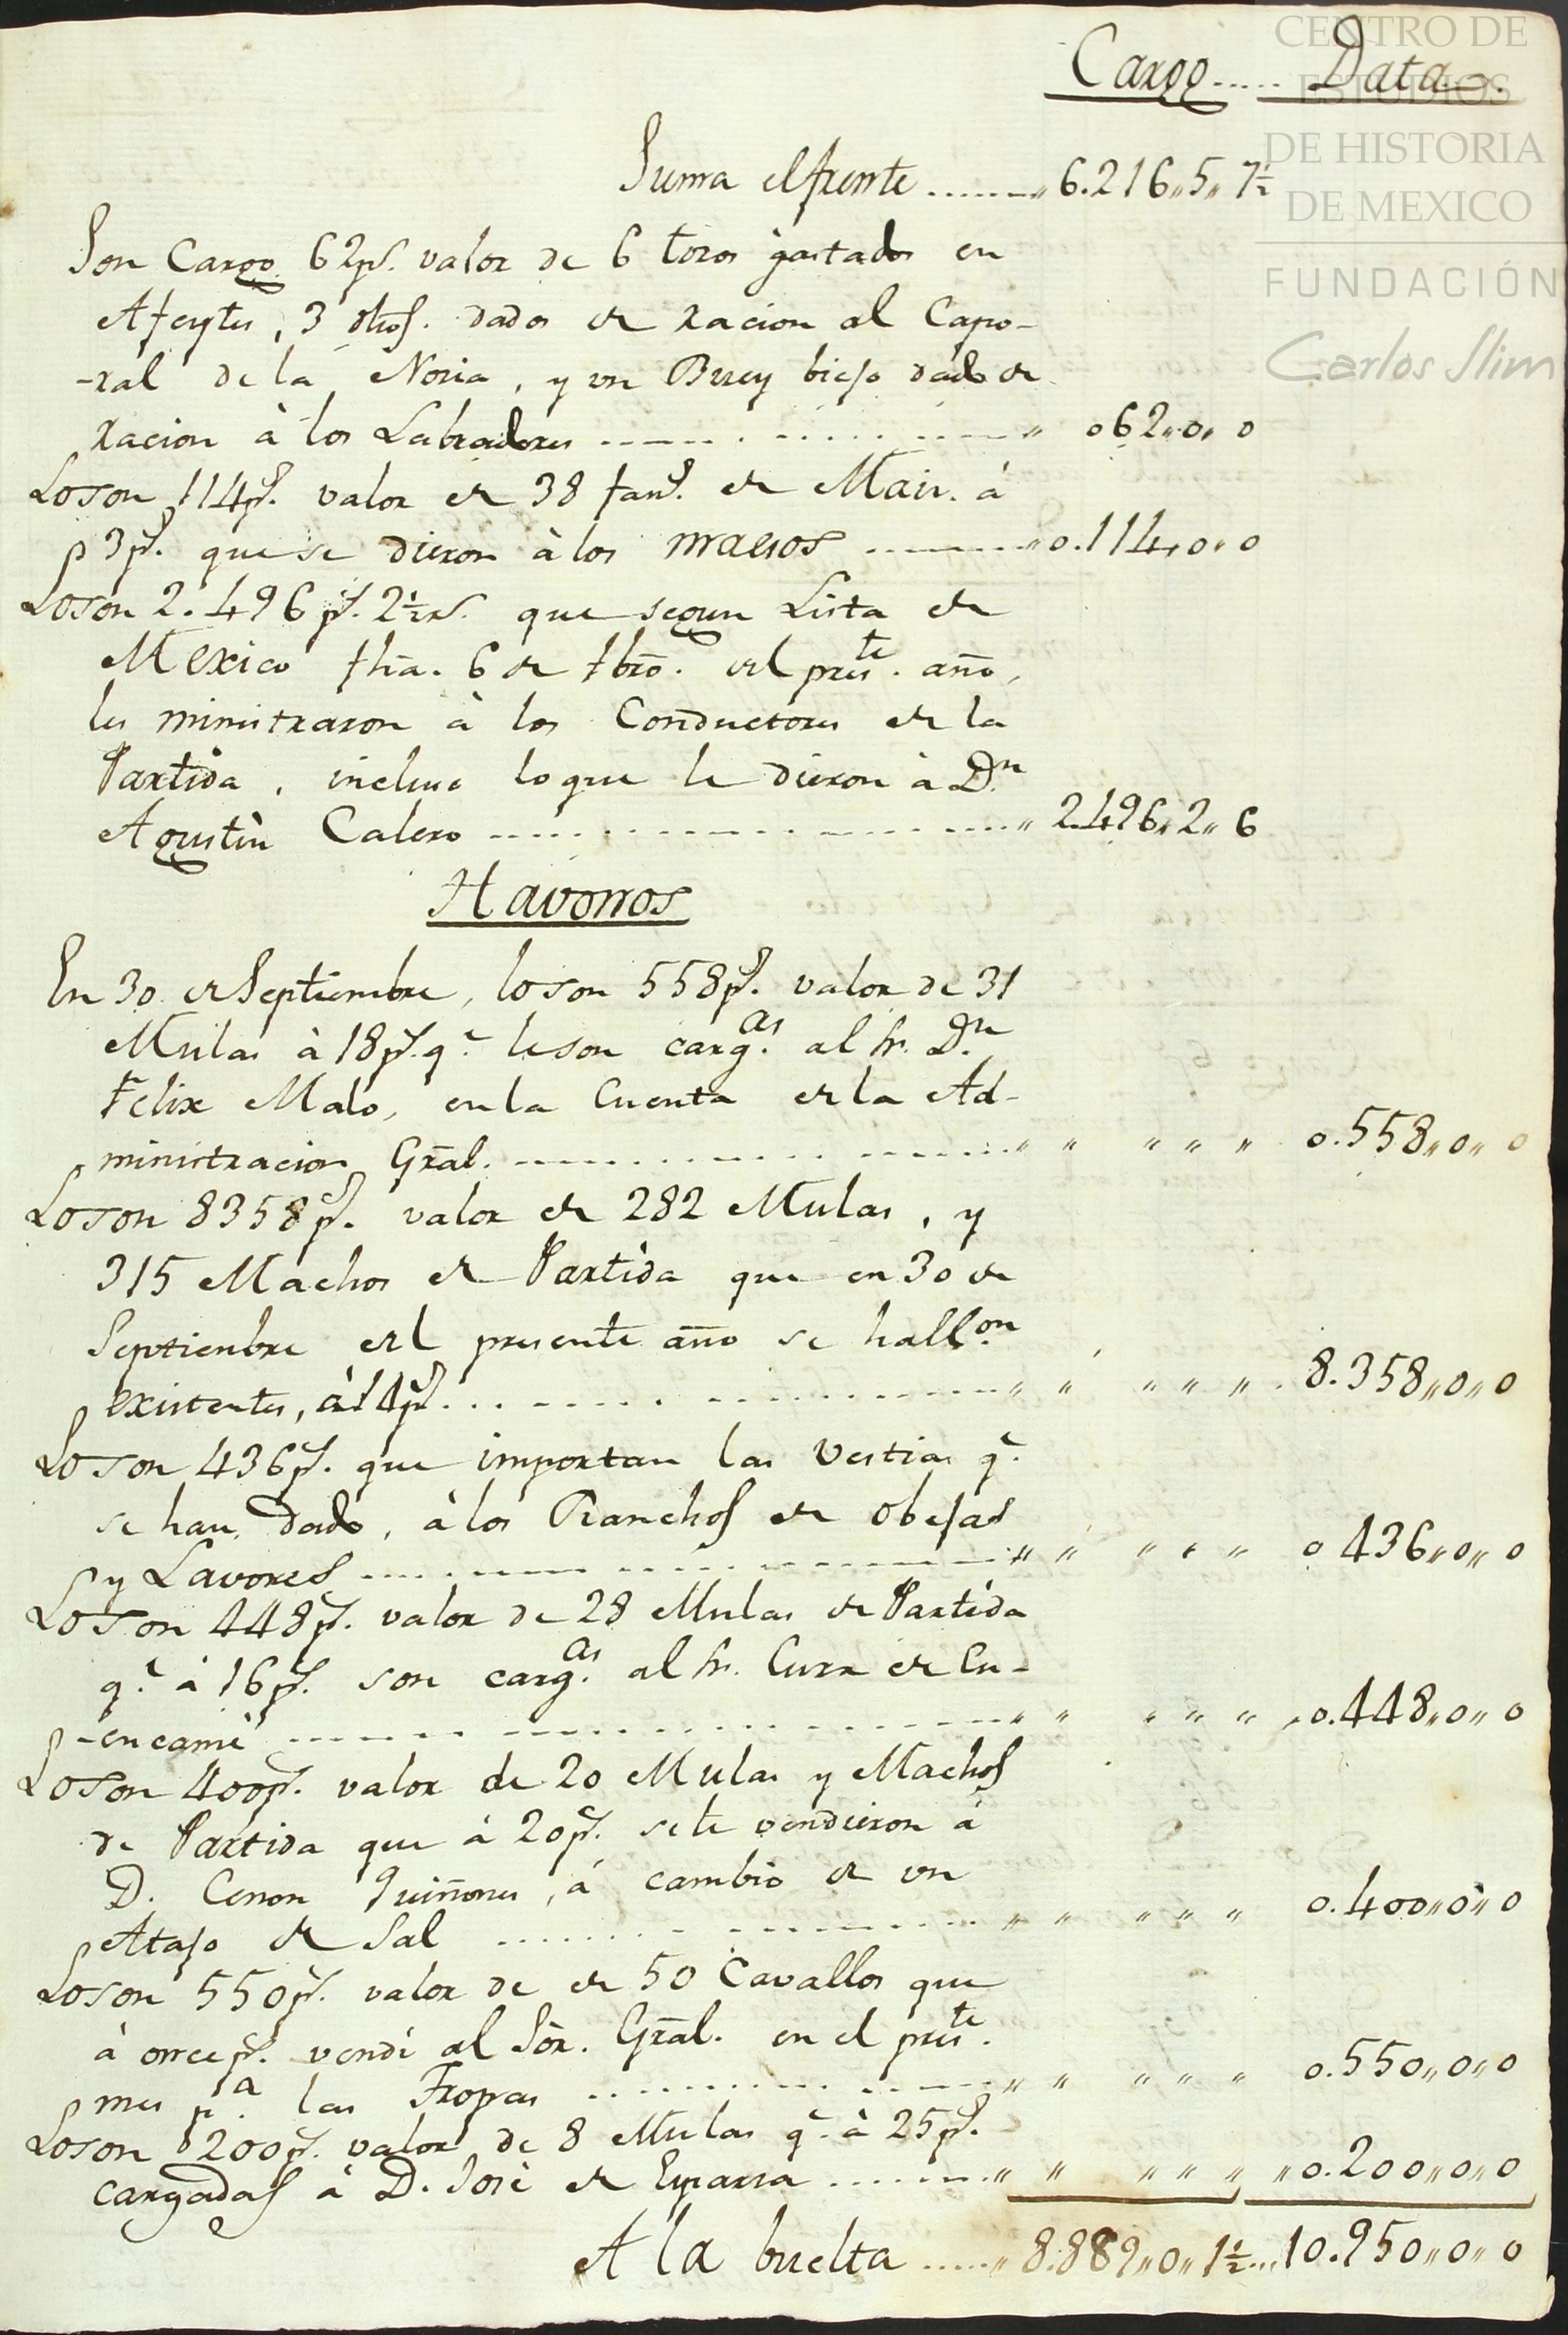 CENTRO DE
ESTUDIOS
DE HISTORIA
DE MEXICO
FUNDACIÓN
Carlos Slim
Cargo..... Data.
Suma el frente ........ 6.216,,5,,7½
Son Cargo 62ps. valor de 6 toros gastados en
Afeytes, 3 dhos. dados de racion al Capo-
-ral de la Noria, y un Buey biejo dado de
racion à los Labradores ........ 062,,0,,0
Loson 114ps. valor de 38 fans. de Mair. à
3ps. que se dieron à los mesos ........ 0.114,,0,,0
Loson 2.496ps. 2½rs. que segun Lista de
Mexico fha. 6 de fbro. del preste. año,
les ministraron à los Conductores de la
Partida, incluso lo que le dieron à Dn.
Agustin Calero ........ 2.496,,2,,6
Havonos
En 30 de Septiembre, loson 558ps. valor de 31
Mulas à 18ps. q.e leson cargas. al Sr. Dn.
Felix Malo, en la Cuenta de la Ad-
ministracion Gral. ........ ,, ,, ,, ,, 0.558,,0,,0
Loson 8358ps. valor de 282 Mulas, y
315 Machos de Partida que en 30 de
Septienbre del presente año se hallon.
existentes, à 14ps. ........ ,, ,, ,, ,, 8.358,,0,,0
Loson 436ps. que importan las Vestias q.e
se han dado, à los Ranchos de Obejas
y Lavores ........ ,, ,, ,, ,, 0.436,,0,,0
Loson 448ps. valor de 28 Mulas de Partida
q.e à 16ps. son cargas. al Sr. Cura de Cu-
-encamè ........ ,, ,, ,, ,, 0.448,,0,,0
Loson 400ps. valor de 20 Mulas y Machos
de Partida que à 20ps. se le vendieron à
D. Cenon Quiñones, à cambio de un
Atajo de Sal ........ ,, ,, ,, ,, 0.400,,0,,0
Loson 550ps. valor de de 50 Cavallos que
à onceps. vendi al Sör. Gral. en el preste.
mes pa. las Tropas ........ ,, ,, ,, ,, 0.550,,0,,0
Loson 200ps. valor de 8 Mulas q.e à 25ps.
cargadas à D. José de Esparsa ........ ,, ,, ,, ,, 0.200,,0,,0
A la buelta ........ 8.889,,0,,1½... 10.950,,0,,0